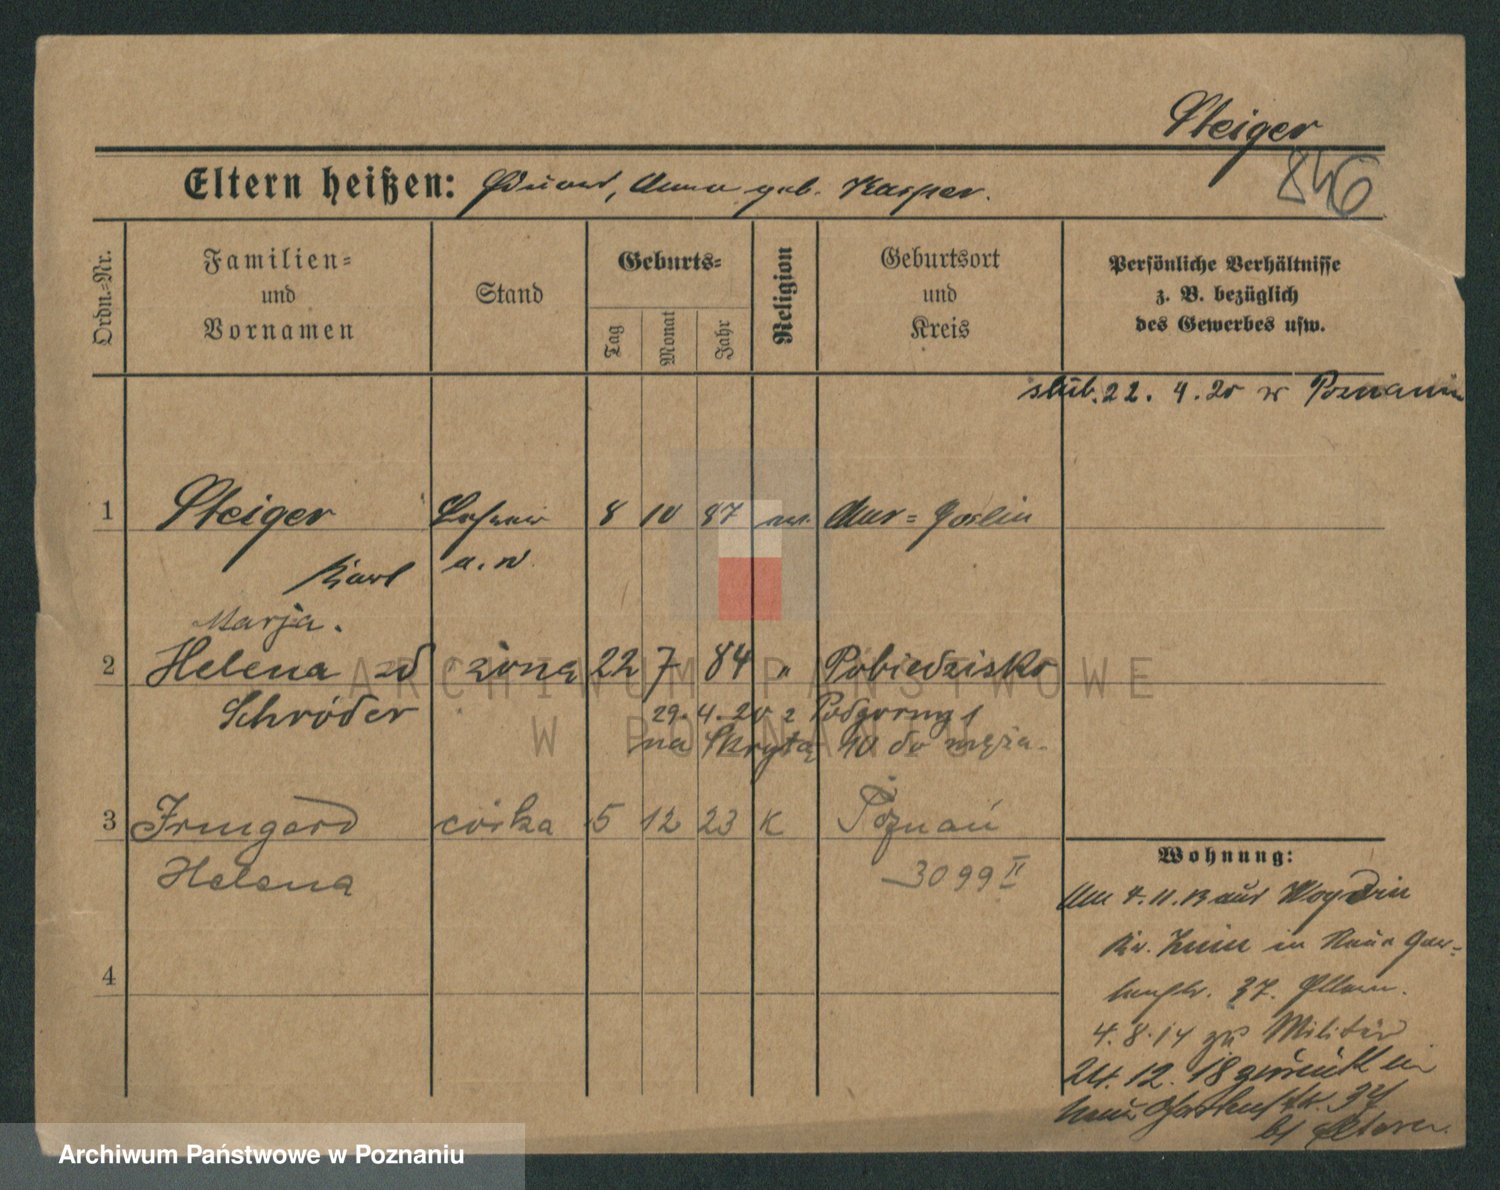 Steiger
846
Eltern heißen: Eduard, Anna geb. Kasper.
Ordn.-Nr.
Familien-
und
Vornamen
Stand
Geburts-
Tag
Monat
Jahr
Religion
Geburtsort
und
Kreis
Persönliche Verhältnisse
z. B. bezüglich
des Gewerbes usw.
ślub. 22. 4. 20 w Poznaniu
1 Steiger 8 10 87 Mur-Goslin
Karl
Marja.
2 Helena zd żona 22 7 84 " Pobiedziska
Schröder
29. 4. 20 z Podgórnej
na Skrytą 10 do męża.
3 Irmgard córka 5 12 23 K Poznań
Helena
3099 II
4
Wohnung:
Am 4. 11. 13 aus
Kr. Znin in Neue Gar-
tenstr. 37. Eltern.
4. 8. 14 zu Militär
24. 12. 18 zurück in
Neue Gartenstr. 37
b/ Eltern.
ARCHIWUM PAŃSTWOWE
W POZNANIU
Archiwum Państwowe w Poznaniu